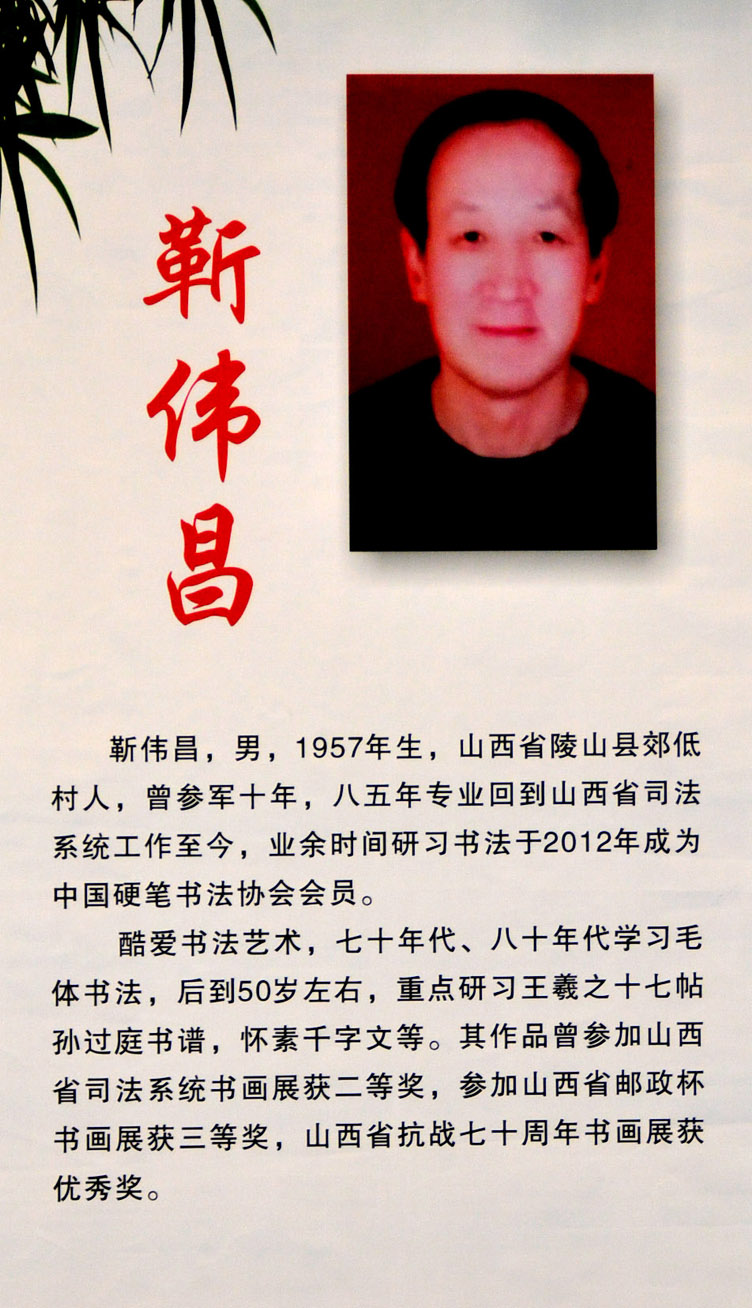 靳伟昌
靳伟昌，男，1957年生，山西省陵山县郊低
村人，曾参军十年，八五年专业回到山西省司法
系统工作至今，业余时间研习书法于2012年成为
中国硬笔书法协会会员。
酷爱书法艺术，七十年代、八十年代学习毛
体书法，后到50岁左右，重点研习王羲之十七帖
孙过庭书谱，怀素千字文等。其作品曾参加山西
省司法系统书画展获二等奖，参加山西省邮政杯
书画展获三等奖，山西省抗战七十周年书画展获
优秀奖。